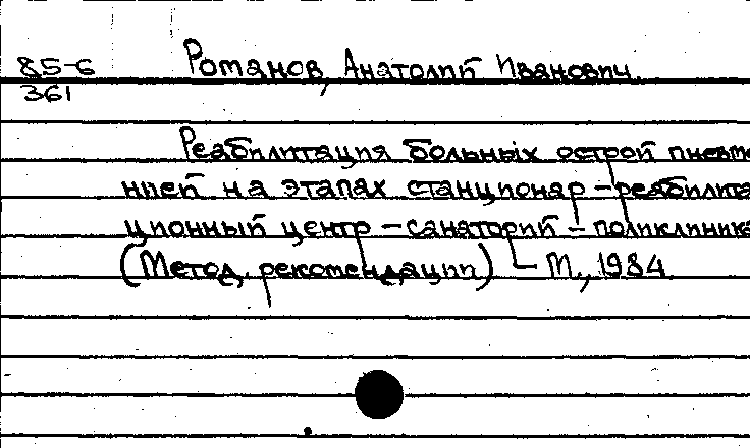 85-6 Романов, Анатолий Иванович.
361
Реабилитация больных острой пневмо
нией на этапах стационар - реабилита
ционный центр - санаторий - поликлиника
(Метод. рекомендации) - М., 1984.